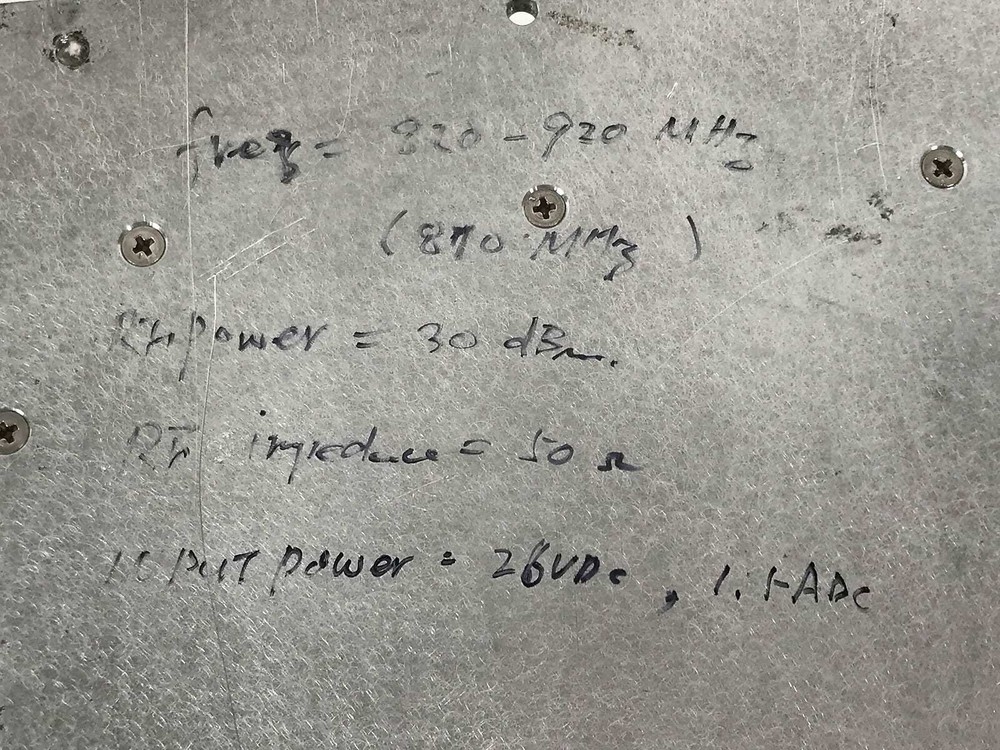 freq = 820 - 920 MHz
(870 MHz)
RF power = 30 dBm.
RF impedance = 50 Ω
Input power = 26VDC, 1.5ADC